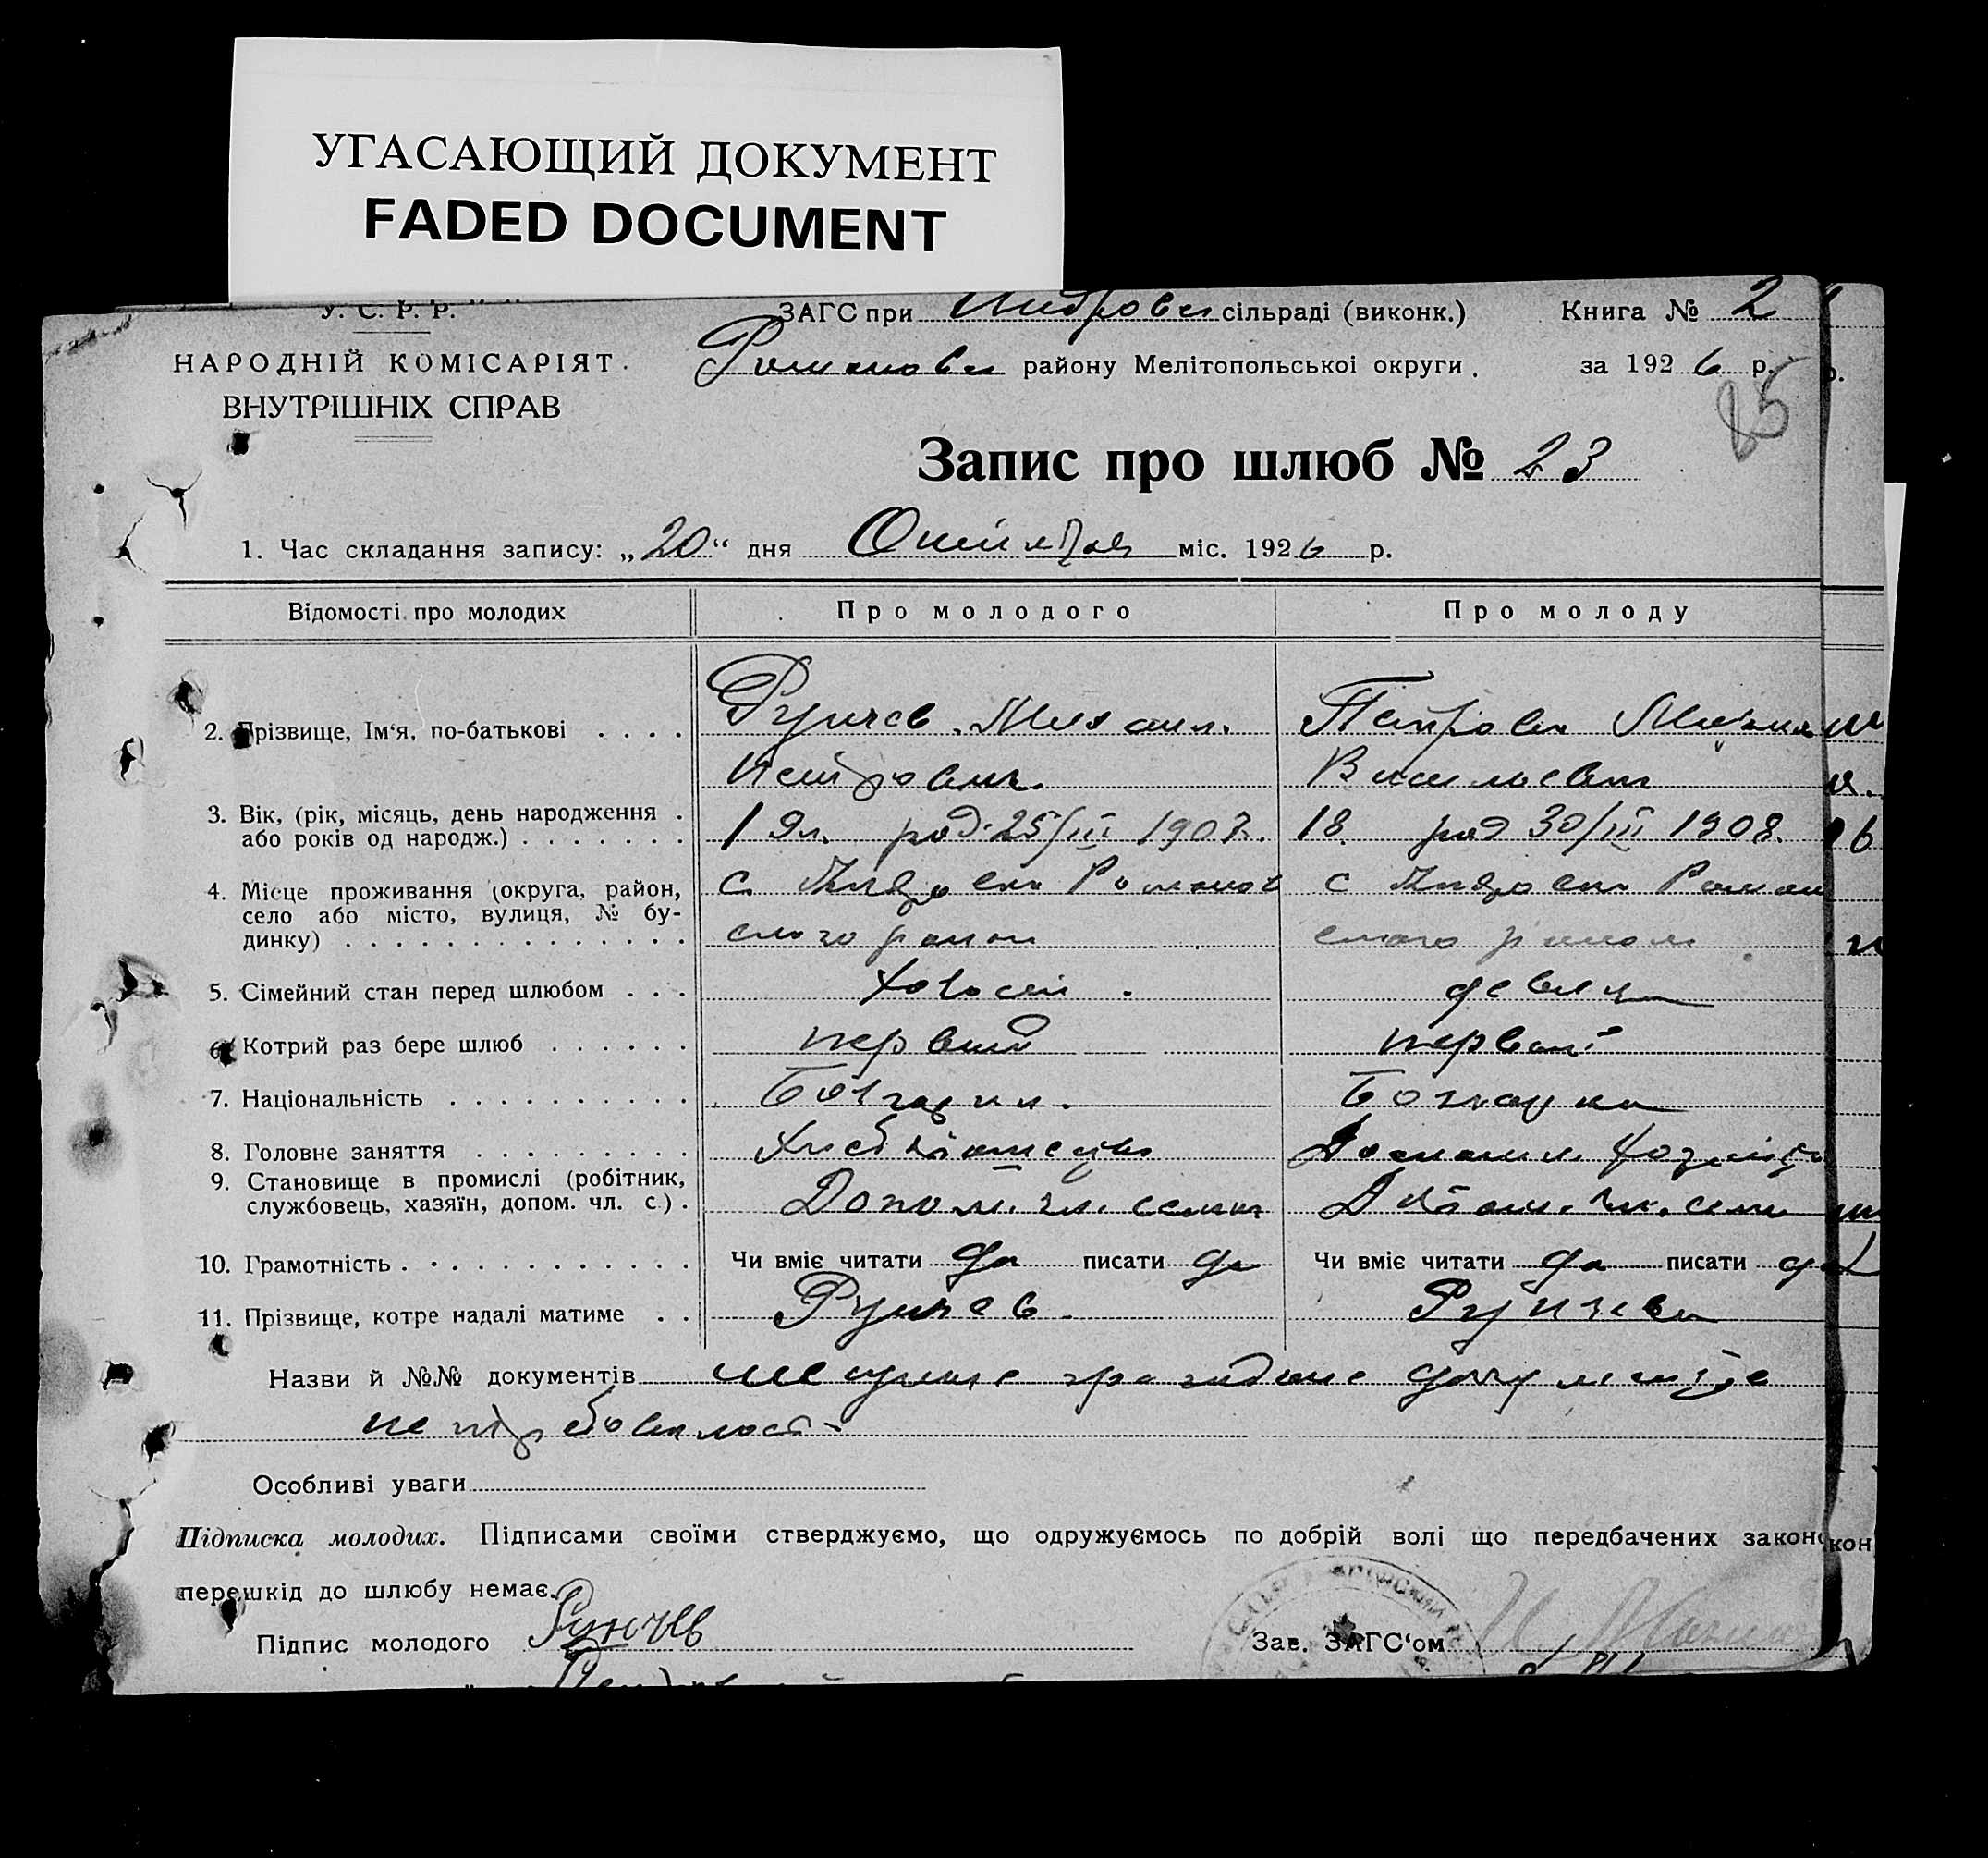 УГАСАЮЩИЙ ДОКУМЕНТ
FADED DOCUMENT
У. С. Р. Р.
ЗАГС при сільраді (виконк.) Книга № 2
НАРОДНІЙ КОМІСАРІЯТ.
району Мелітопольської округи. за 1926 р.
ВНУТРІШНІХ СПРАВ
85
Запис про шлюб № 23
1. Час складання запису: „20“ дня Октября міс. 1926 р.
Відомості про молодих Про молодого Про молоду
2. Прізвище, Ім‘я, по-батькові . . . . Рунчев Михаил. Петрова
Петрович. Васильевна
3. Вік, (рік, місяць, день народження . 19 л. род. 25/III 1907 г. 18 род 30/III 1908.
або років од народж.) . . . . . . .
4. Місце проживання (округа, район, с.  с
село або місто, вулиця, № бу-
динку) . . . . . . . . . . . . . . ского района ского района
5. Сімейний стан перед шлюбом . . . Холост. девица
6. Котрий раз бере шлюб . . . . . . первый первый
7. Національність . . . . . . . . . . Болгарин. Болгарка
8. Головне заняття . . . . . . . . . Хлебопашество
9. Становище в промислі (робітник,
службовець, хазяїн, допом. чл. с.) . Допом. чл. семьи чл. семьи
10. Грамотність . . . . . . . . . . . . Чи вміє читати да писати да Чи вміє читати да писати да
11. Прізвище, котре надалі матиме . . Рунчев. Рунчева
Назви й №№ документів
не требовалось
Особливі уваги
Підписка молодих. Підписами своїми стверджуємо, що одружуємось по добрій волі що передбачених законо
перешкід до шлюбу немає.
Підпис молодого Рунчев Зав. ЗАГС‘ом